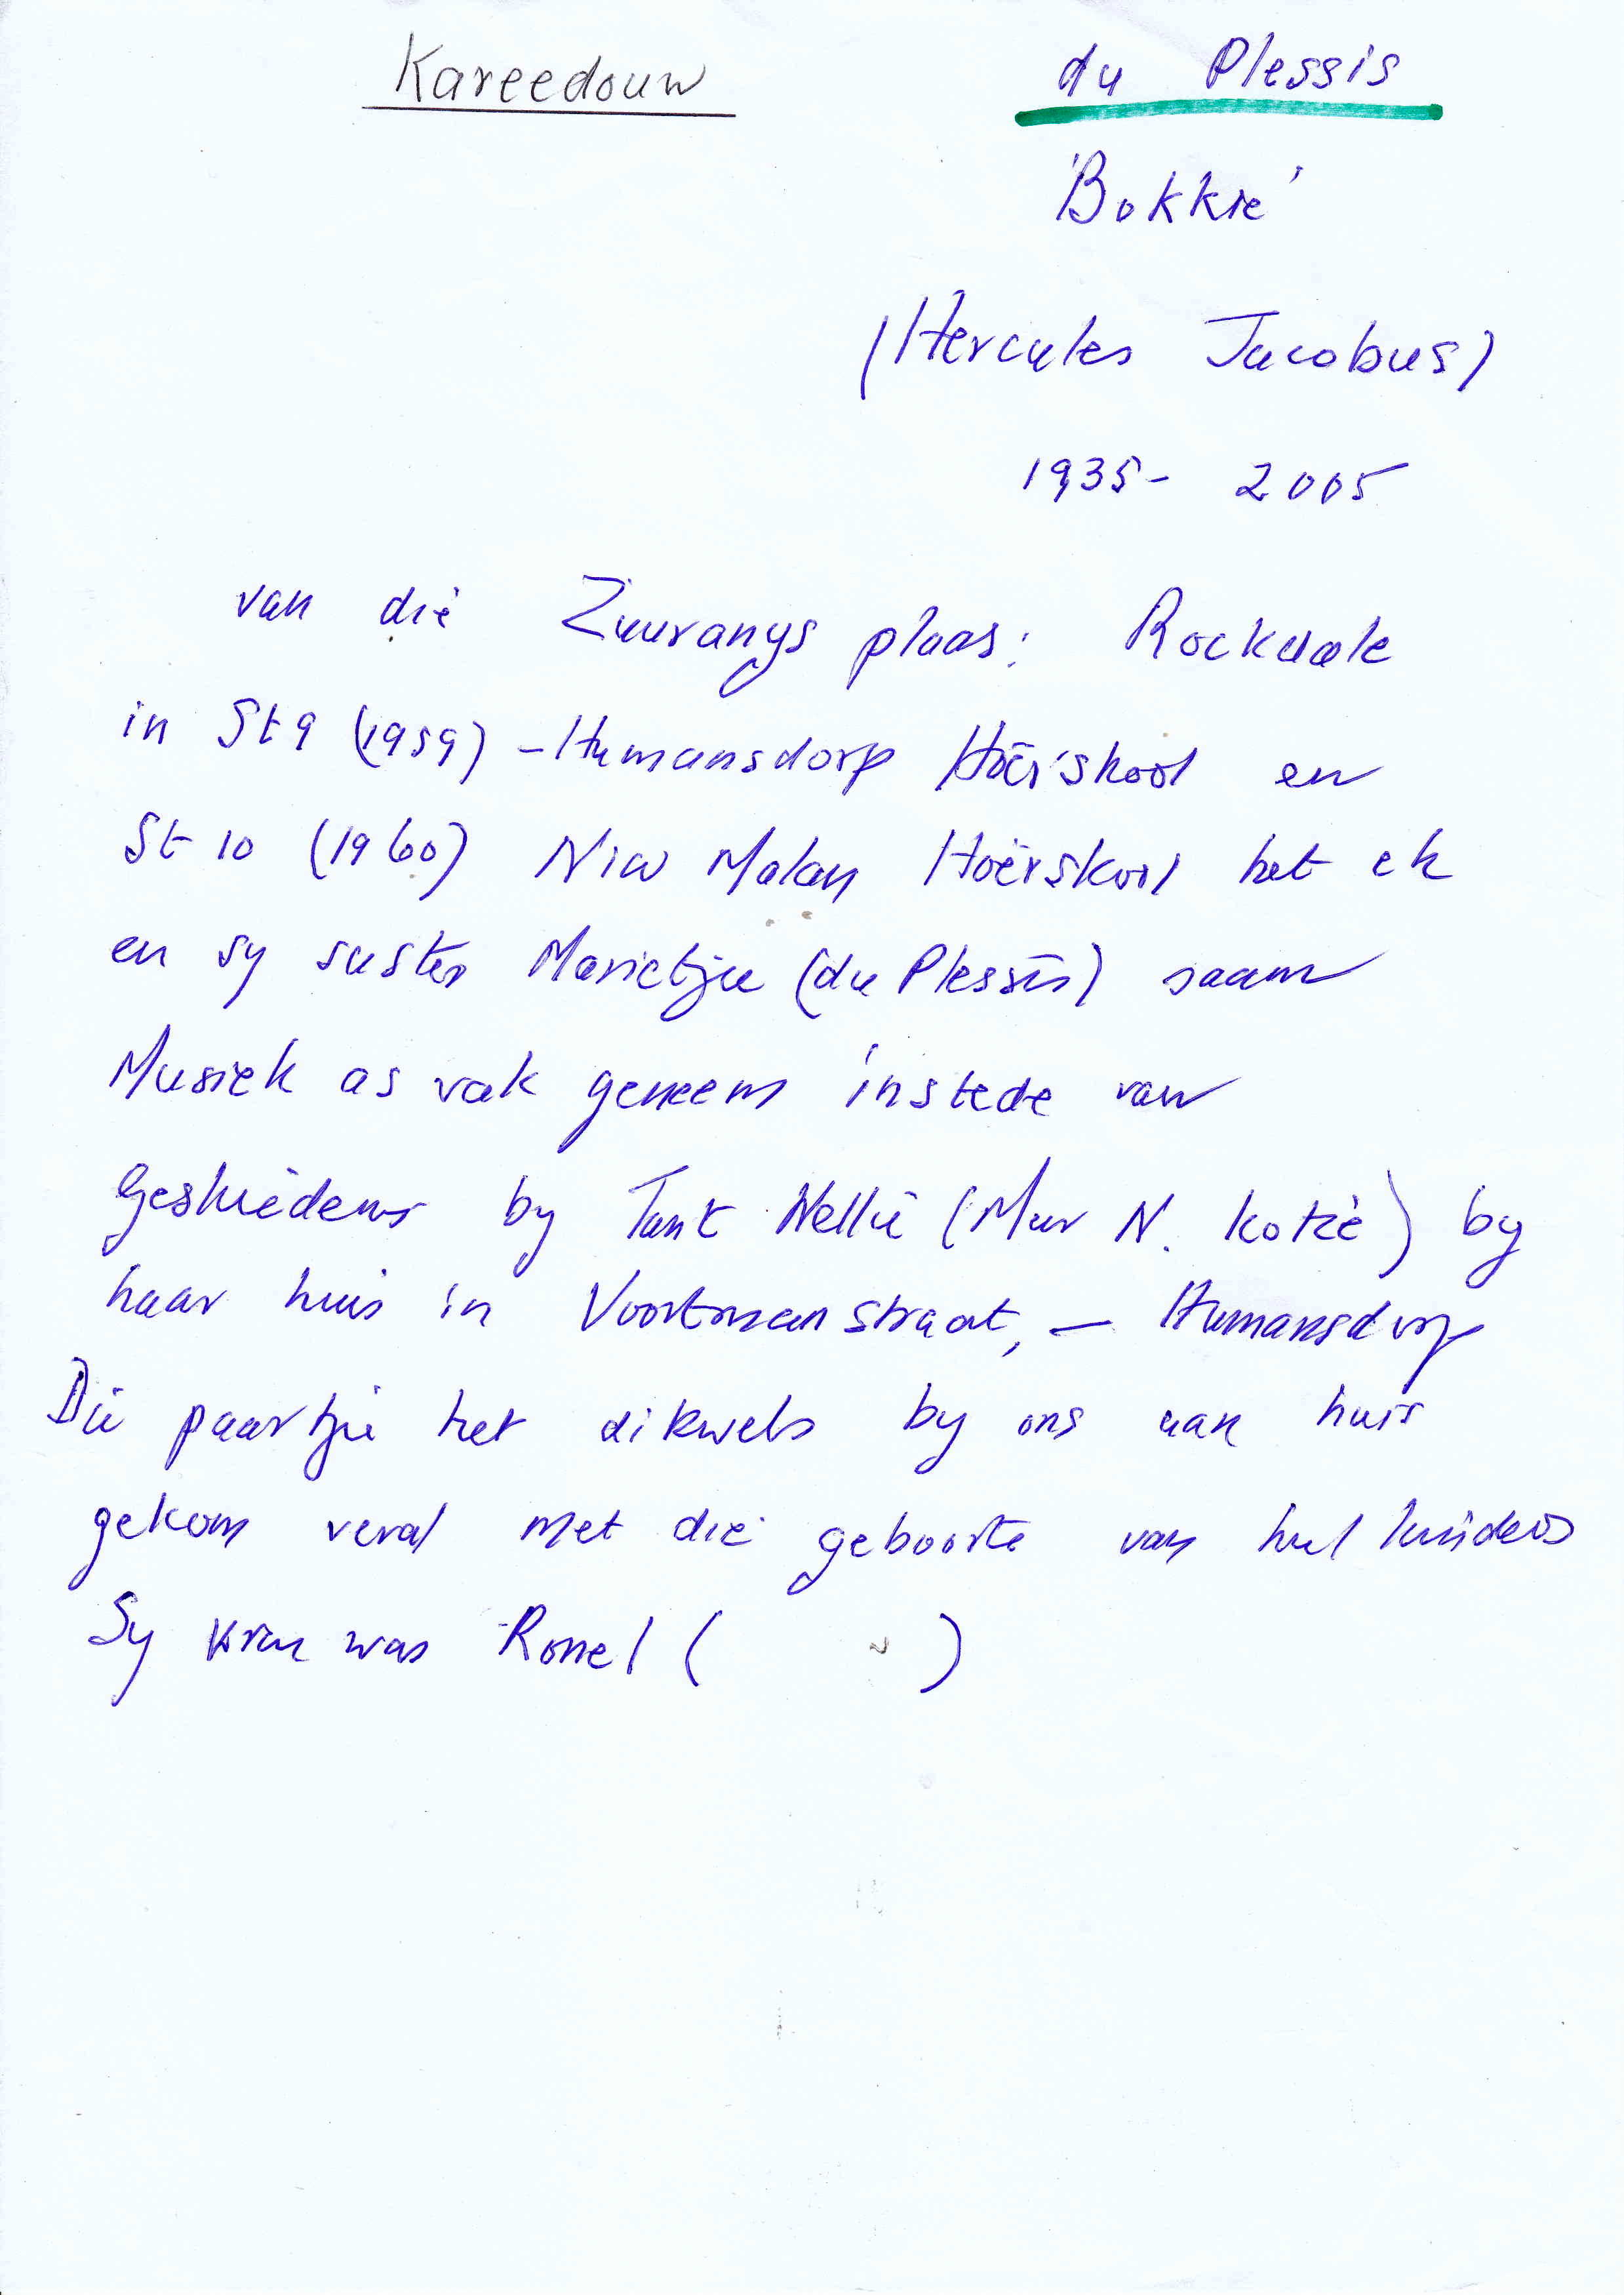 Kareedouw
du Plessis
'Bokkie'
(Hercules Jacobus)
1935- 2005
van die Zuuranys plaas: Rockdale
in St 9 (1959) - Humansdorp Hoërskool en
St 10 (1960) Nico Malan Hoërskool het ek
en sy suster Marietjie (du Plessis) saam
Musiek as vak geneem instede van
Geskiedenis by Tant Nellie (Mev N. Kotze) by
haar huis in Voortman straat, - Humansdorp
Die paartjie het dikwels by ons aan huis
gekom veral met die geboorte van hul kinders
Sy vrou was Ronel ( )